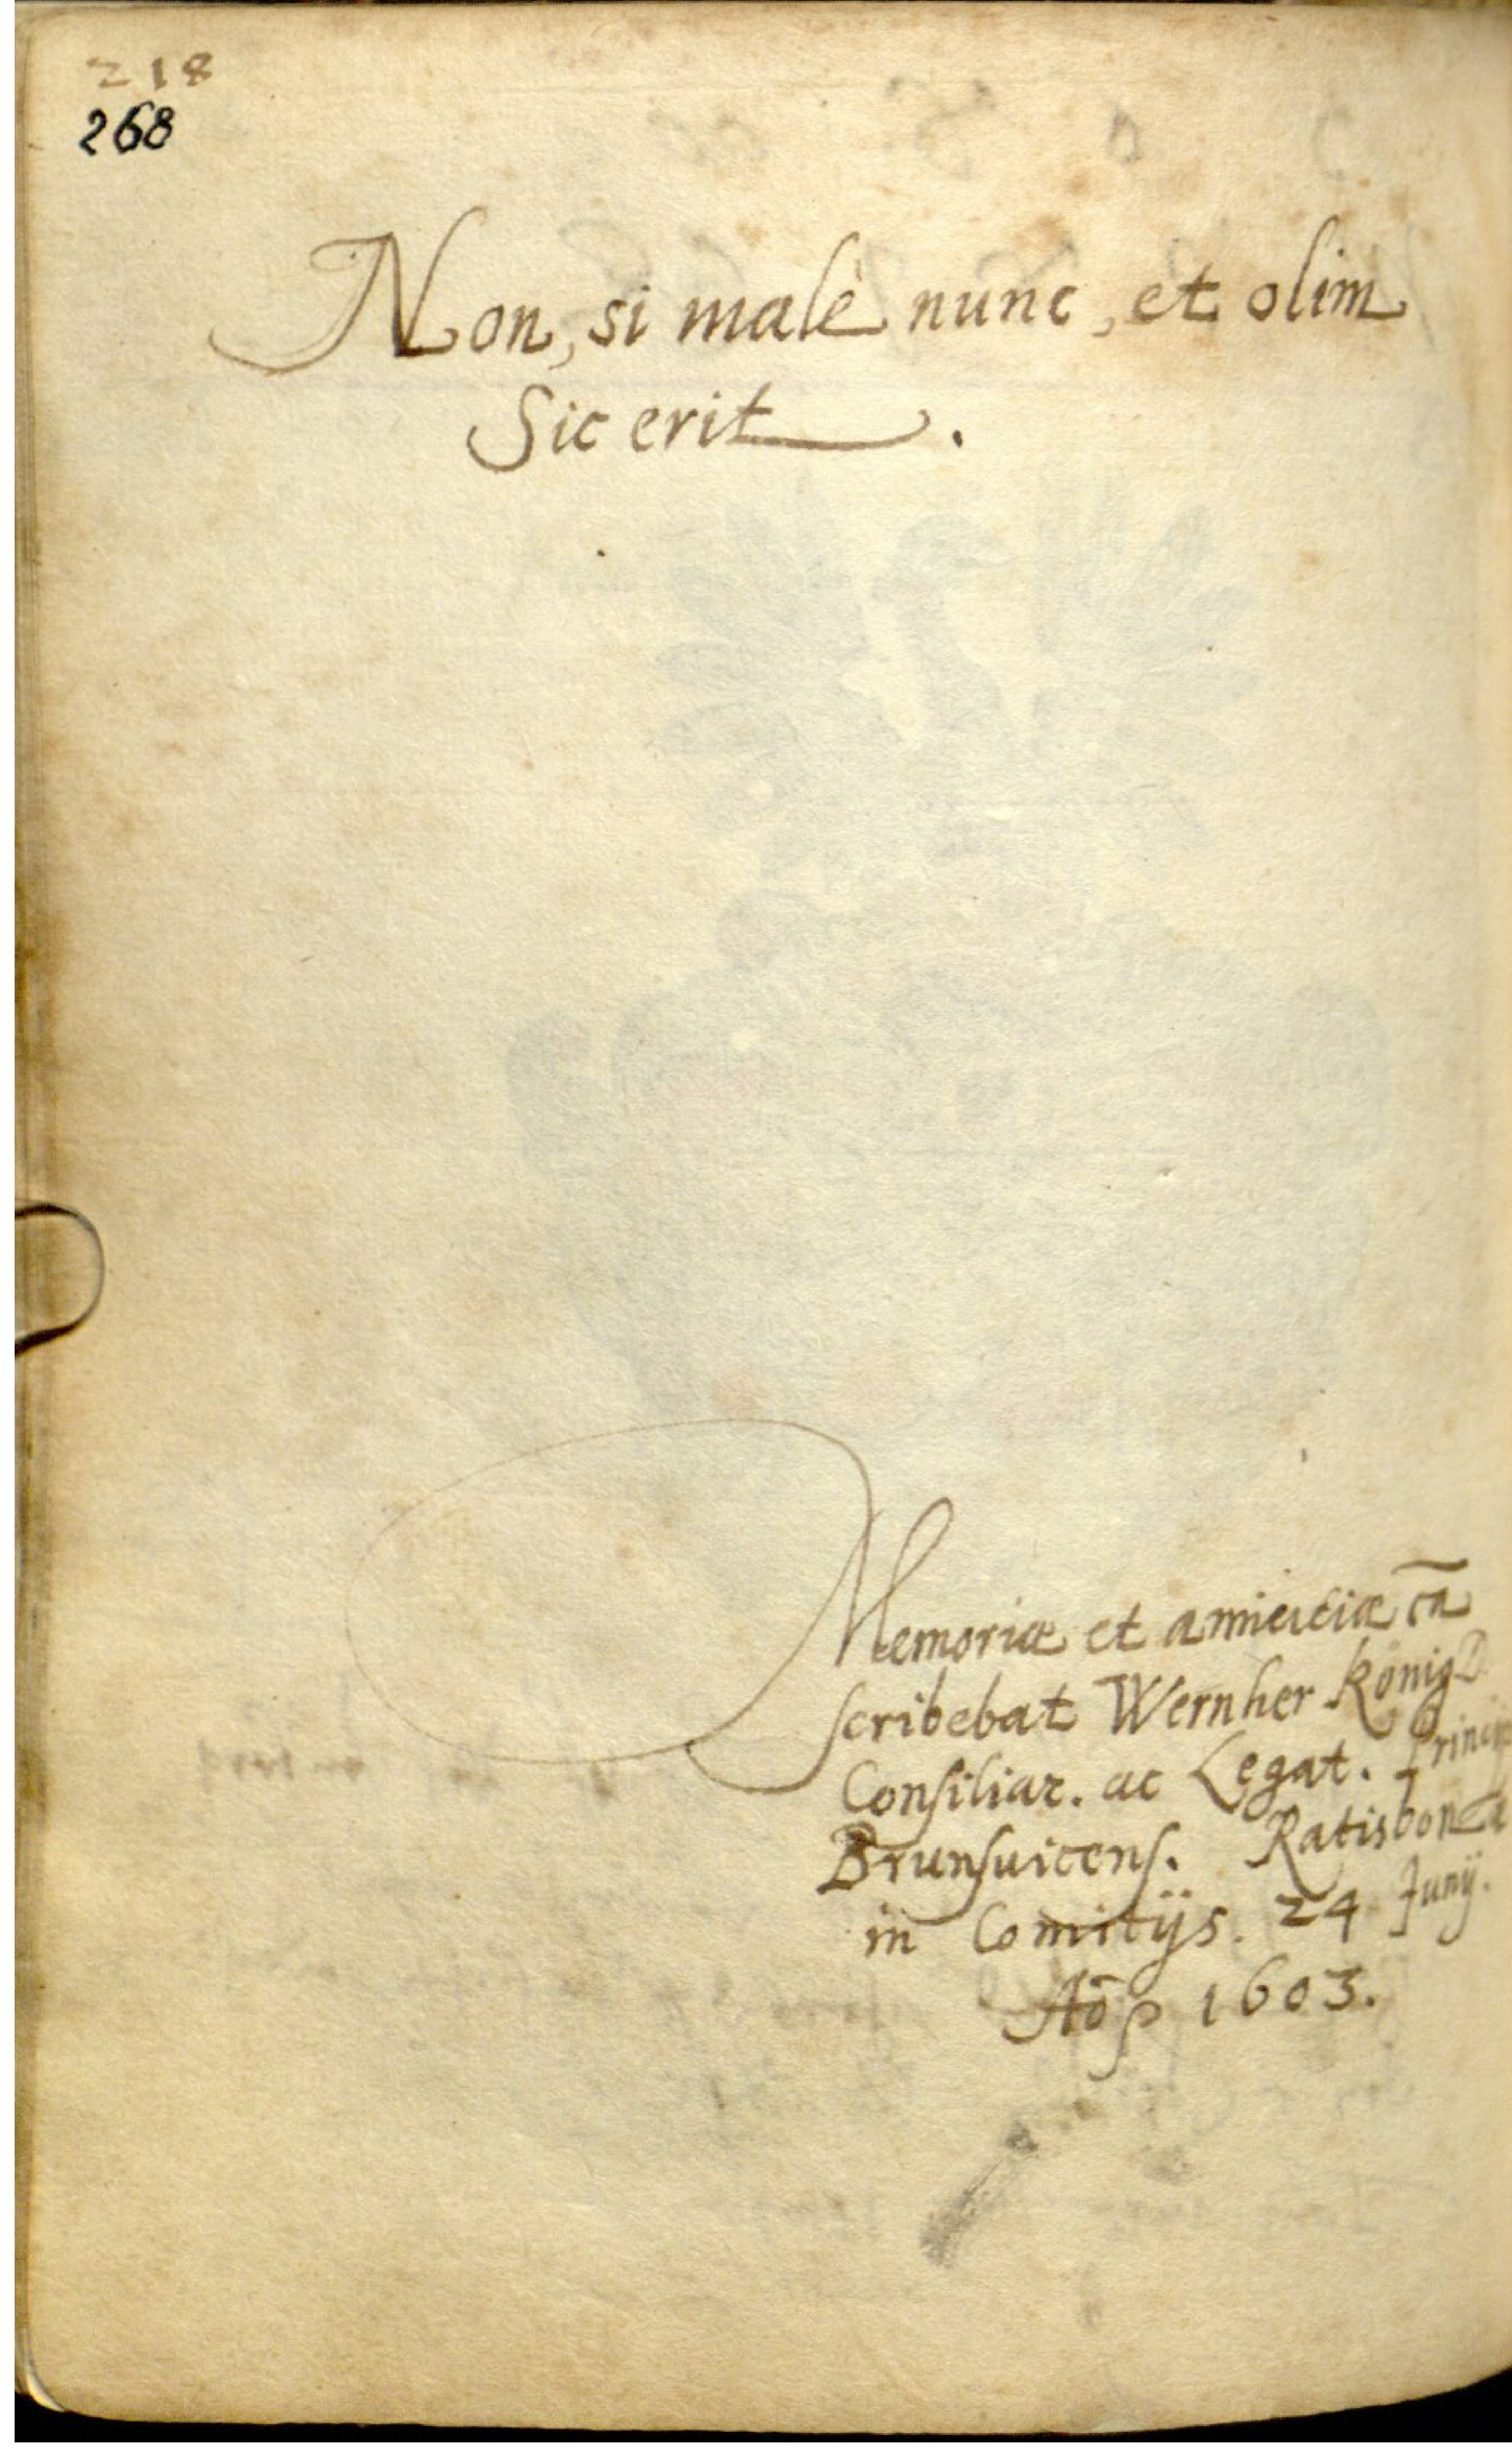 218
268
Non, si malè nunc, et olim
Sic erit.
Memoriæ et amicitiæ cā
scribebat Wernher König D
Consiliar. ac Legat.
Brunsuicens. Ratisbonæ
in Comitijs. 24 Junij.
Aōo 1603.